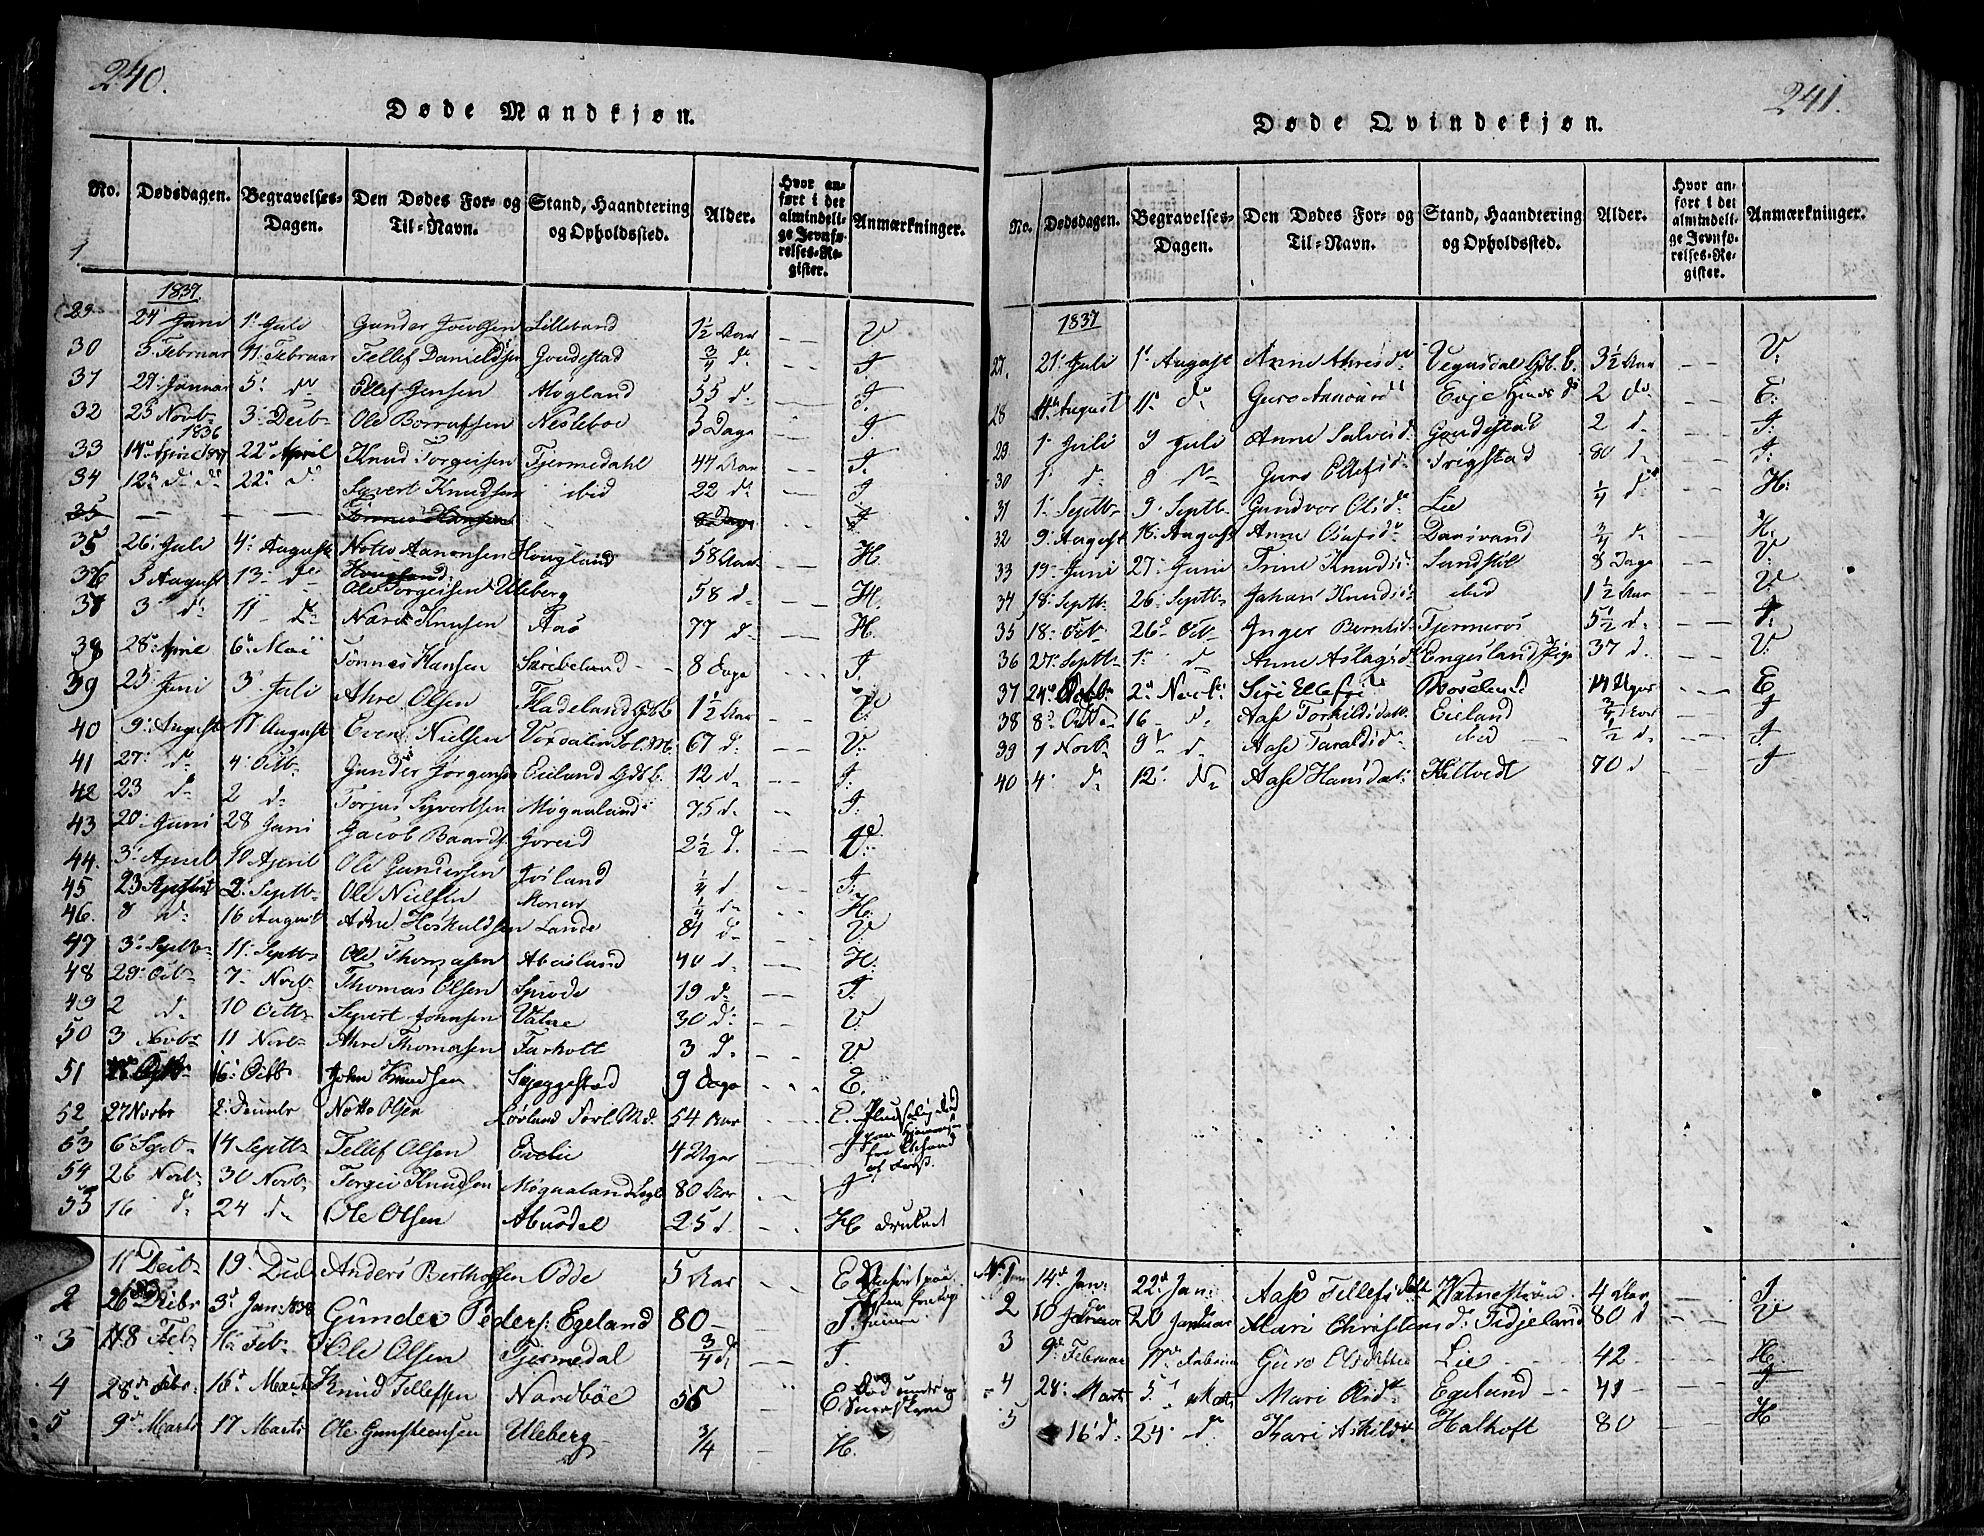 240.
Døde Mandkjøn.
No. Dødsdagen. Begravelses-Dagen. Den Dødes For- og Til-Navn. Stand, Haandtering og Opholdssted. Alder. Hvor anført i det almindelige Jevnførelses-Register. Anmærkninger.
1
1837
29 24 Juni 1. Juli Gunder Lilleland 1½ Aar V.
30 3 Februar 11. Februar Tellef Danielsen Goudestad ¾ d. I.
31 29. Januar 5. d. Ellef Jensen Møgland 55 d. I.
32 25 Novb. 1836 3. Decb. Ole Nesleboe 3 Dage I.
33 14. April 1837 22 April Knud Torgeisen Tjermedahl 44 Aar I.
34 12. d. d. 22. d. Syvert Knudsen ibid 22 d. I.
35 — — Tønnes Hansen 8 Dage I
35 26. Juli 4. August Notto Aanonsen Hougland 58 Aar H.
36 5 August 13 d. Hougland Ole Torgeisen Uleberg 58 d. H.
37 3. d. 11 d. Narve Knusen Aas 77 d. H.
38 28. April 6. Mai Tønnes Hansen Skribeland 8 Dage I.
39 25 Juni 3 Juli Ahre Olsen Fladeland Gdb. 1½ Aar V.
40 9. August 17 August Even Nielsen Vordalen Sol. M. 67 d. V.
41 27. d. 4. Octb. Gunder Jørgensen Eieland Gdb. 12 d. I.
42 23 d. 2 d. Torjus Syvertsen Møgaaland 75 d. I.
43 20. Juni 28 Juni Jacob Baards. Joreid 2½ d. V.
44. 3. April 10 April Ole Gundersen Josland ¼ d. I.
45 23 August 2. Septb. Ole Nielsen Monen ¼ d. H.
46. 8 d. 16 August Adne Høskuldsen Lande 84 d. V.
47 3. Septb. 11. Septb. Ole Thomasen Abeisland 40 d. H.
48 29. Octb. 7. Novb. Thomas Olsen Sprode 19 d. I.
49 2 d. 10 Octb. Syvert Johnsen Vatne 30 d. V.
50 3 Novbr 11 Novb. Ahre Thomasen Farholt 3 d. V.
51 16. Octb. John Knudsen Skeggestad 9 Dage E.
52 27 Novbr 2. Decembr Notto Olsen Lørland 54 Aar E.
53 6. Septb. 14 Septb. Tellef Olsen Evelie 4 Uger I
54 26 Novb. 30 Novb. Torgei Knudsen Møgaaland 80 Aar I
55 16 d. 24 d. Ole Olsen Abusdal 25 d. H druknet
11 Decb. 19. Anders Berthosen Odde 5 Aar E
2 26 Decbr 3. Jan: 1838 Gunder Peders: Egeland 80 I
3 8 Feb. 16 Feb. Ole Olsen Tjermedal ¾ d. I.
4 28 Febr. 16. Marts Knud Tellefsen Nordbøe 56 E
5 9 Marts 17 Marts Ole Gunsteensen Uleberg ¾ H.
241.
Døde Qvindekjøn.
No. Dødsdagen. Begravelses-Dagen. Den Dødes For- og Til-Navn. Stand, Haandtering og Opholdssted. Alder. Hvor anført i det almindelige Jevnførelses-Register. Anmærkninger.
1837
27. 21. Juli 1. August Anne Ahresd. Vegusdal Gdb. 3½ Aar V.
28 4. August 11. d. Guro Aanonsd. Evje 2 d. E.
29. 1. Juli 9 Juli Anne Salvesd. Goudestad 2 d. I.
30 1 d. 9 d. Guro Ellefsd. Frigstad 80 d. I.
31 1. Septb. 9. Septb. Gundvor Olsd. Lie ¼ d. H.
32 9. August 16. August Anne Danevand ¾ d. H.
33 19. Juni 27. Juni Trine Knudsd. Sandstøl 8 Dage V.
34 18. Septb. 26. Septb. Johan Knudsd. ibid 1½ Aar V.
35 18. Octb. 26. Octb. Inger Berntsd. Tjermeros 5½ d. I.
36 27. Septb. 1. d. Anne Aslagsd. Engesland Pige 37 d. V.
37 24. Octb. 2. Novb. Siri Ellefsd. 14 Uger E
38 8. Octb. 16 d. Aase Torkildsdatt. Eieland ¾ Aar I
39 1 Novb. 9. d. Aase Taraldsd. ibid ½ d. I.
40 4. d. 12. d. Aase Hansdat. Hiltvedt 70 d I
N. 1 14. Jan. 22. Jan. Aase Tellefsdatt. Vatnestrøm 4 Aar I.
2 10 Januar 20 Januar Mari Christensd. Tidjeland 80 d V
3 9. Februar 17. Februar Guro Olsdatter Lie 42 H.
4 28. Marts 5. Mari Olsd. Egeland 41 I
5 16 d. 24. d. Kari Askildsd. Halhoft 80 H